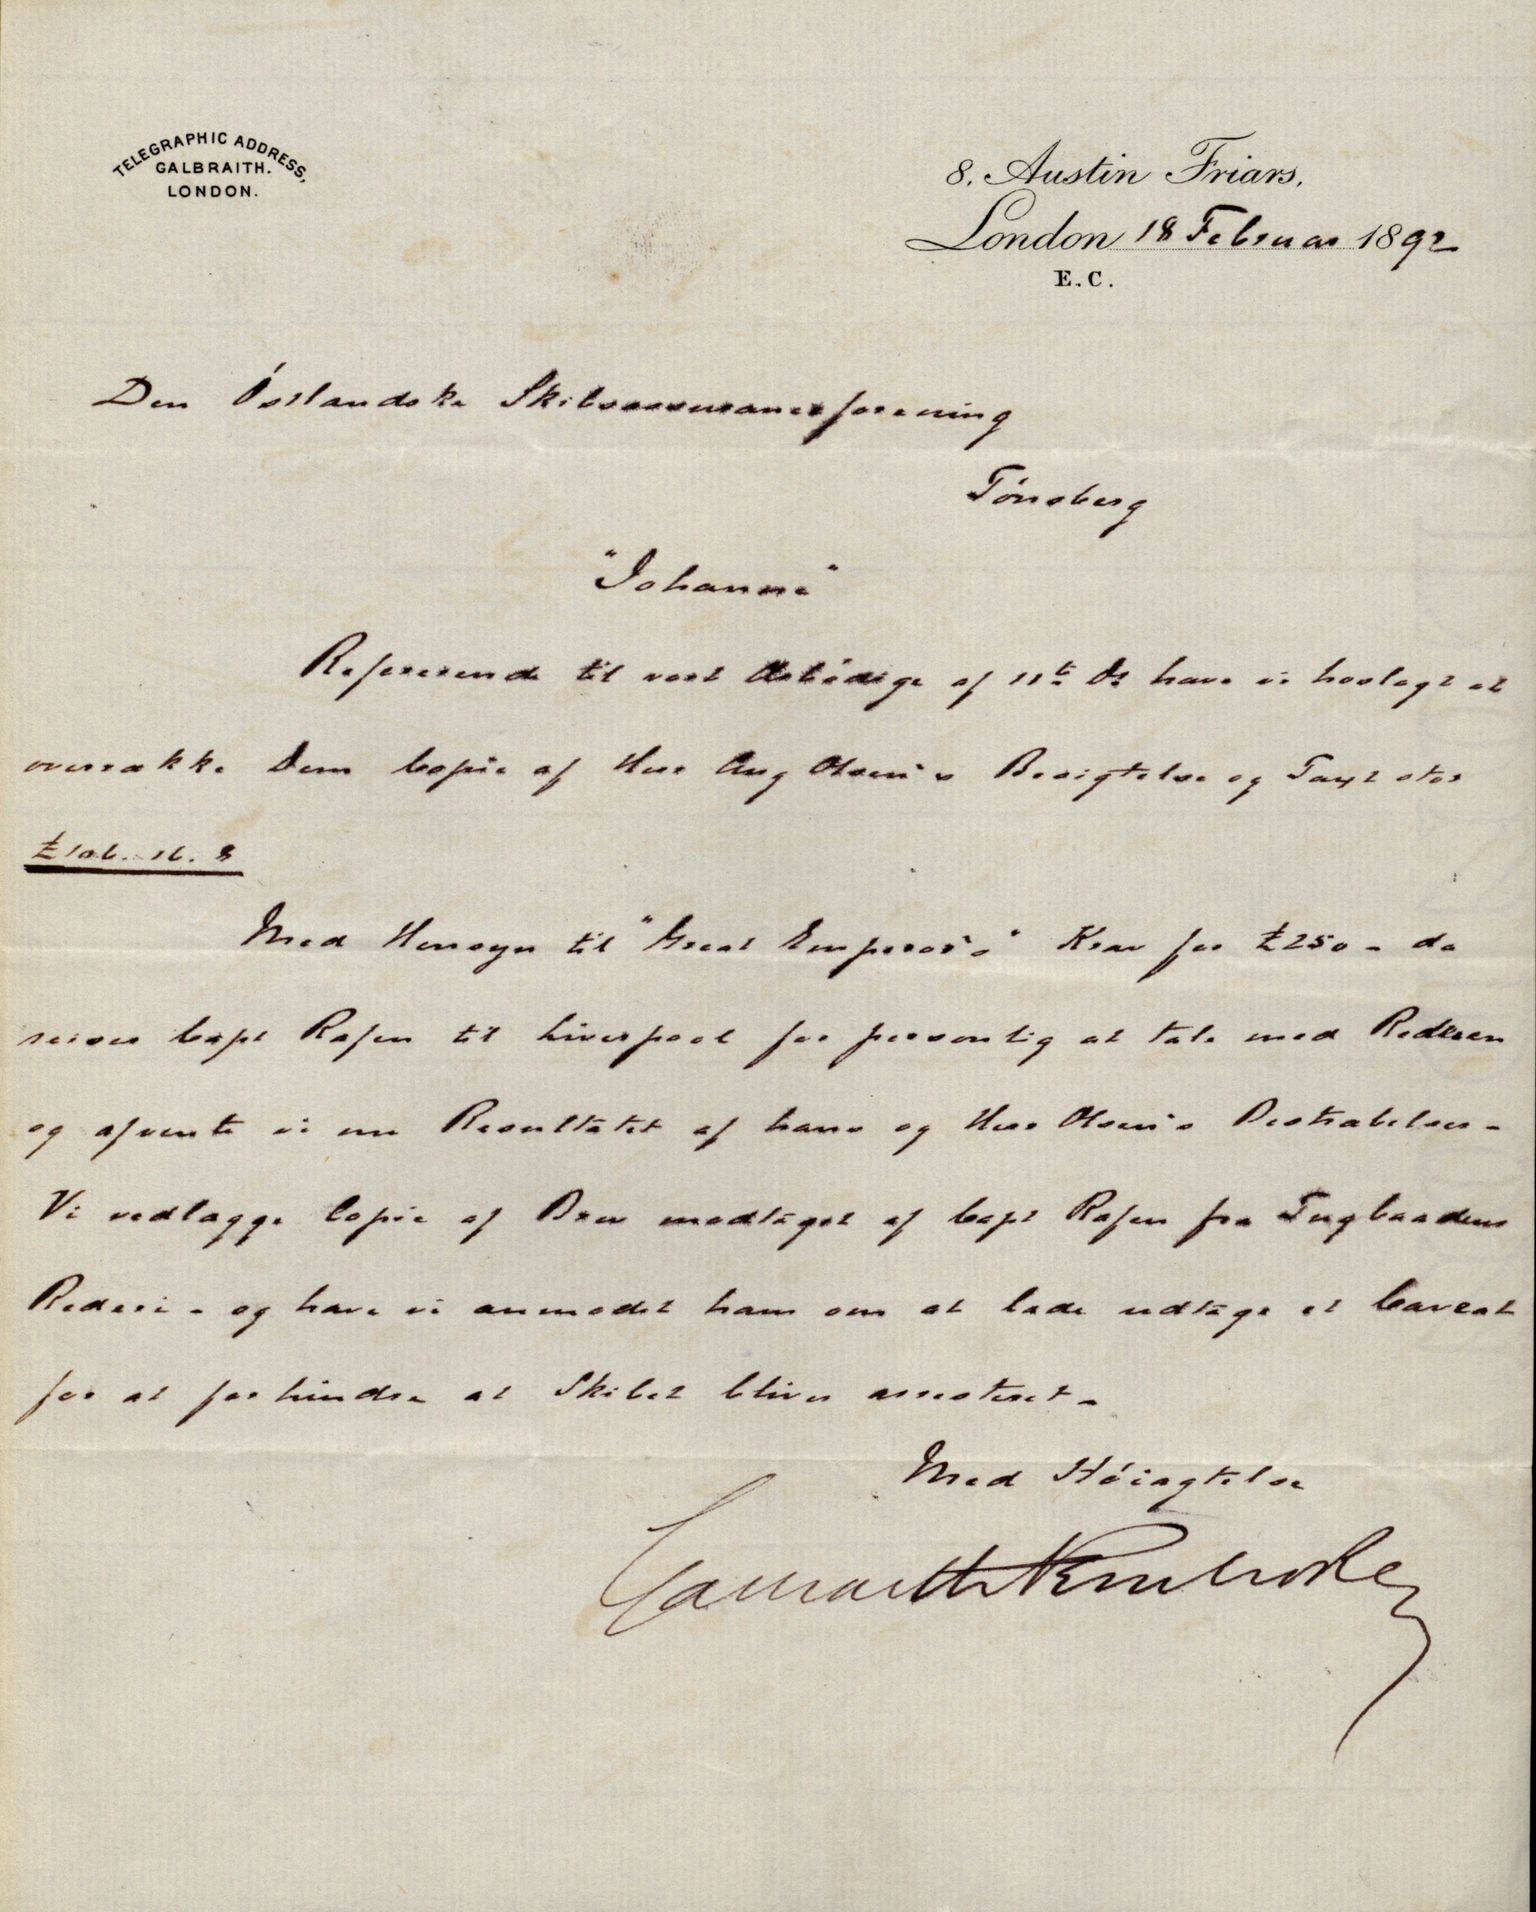 TELEGRAPHIC ADDRESS,
GALBRAITH.
LONDON.
8, Austin Friars,
London 18 Februar 1892
E.C.
Den Østlandske Skibsassuranceforening
Tønsberg
"Johanne"
Refererende til vort Ærbødige af 11te Ds have vi hoslagt at
overrække Dem Copie af Herr Aug Olsen's Besigtelse og Taxt stor
£106. 16. 8
Med Hensyn til "Great Emperor's" Krav for £250 - da
reiser Capt Rafen til Liverpool for personlig at tale med Rederen
og afvente vi nu Resultatet af hans og Herr Olsen's Bestrabelser -
Vi vedlægge Copie af Brev modtaget af Capt Rafen fra Tugbaadens
Rederi - og have vi anmodet ham om at lade udtage et Caveat
for at forhindre at Skibet bliver arresteret -
Med Høiagtelse
Galbraith Pembroke